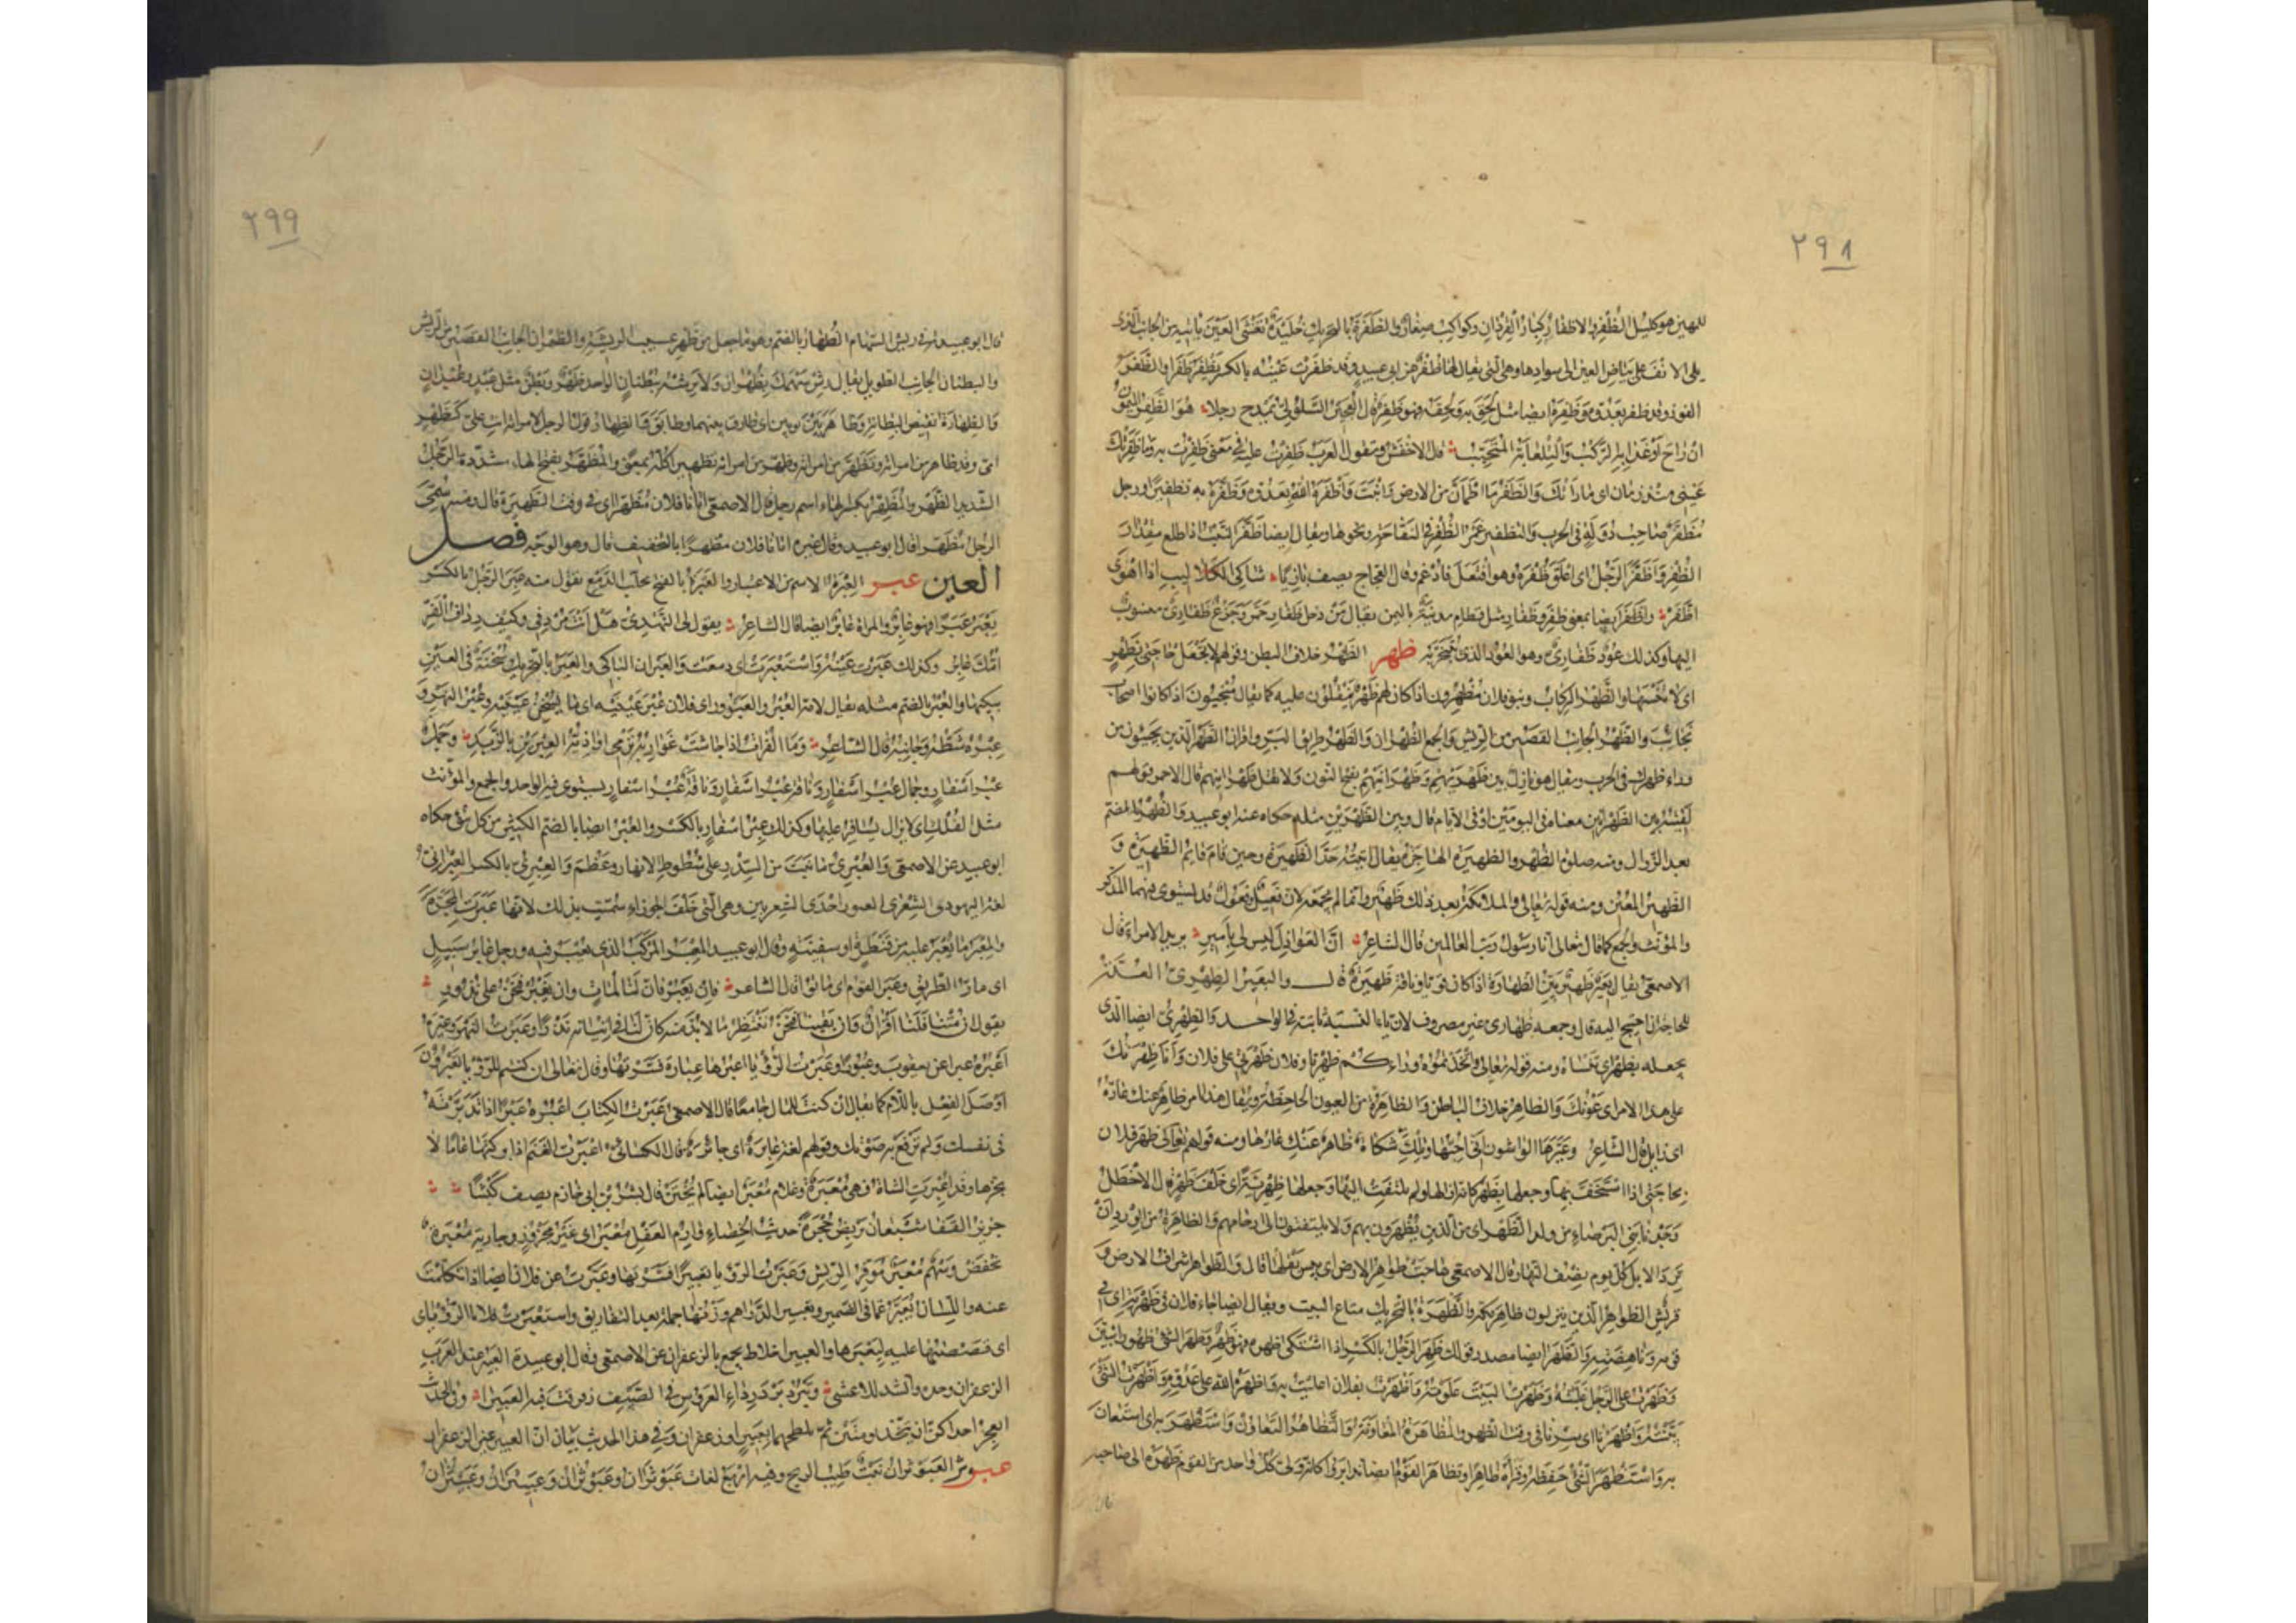 ٢٩٨
للبهين هو كليل الظفر والاظفار كبار القردان وكواكب صغار والظفرة بالتحريك جليدة تغشى العين نابتة من الجانب الذى
يلى الانف على بياض العين الى سوادها وهى التى يقال لها ظفر عن ابى عبيد وقد ظفرت عينه بالكسر تظفر ظفرا والظفر
الفوز وقد ظفر بعدوه وظفره ايضا مثل لحق به ولحقه فهو ظفر قال العجير السلولى يمدح رجلا هو الظفر الميمون
ان راح او غدا به الركب والتلعابة المتحبب قال الاخفش وتقول العرب ظفرت عليه فى معنى ظفرت به وما ظفرتك
عينى منذ زمان اى ما رأتك والظفر ما اطمأن من الارض وانبت واظفره الله بعدوه وظفره به تظفيرا ورجل
مظفر صاحب دولة فى الحرب والتظفير غمز الظفر فى التفاحة ونحوها ويقال ايضا ظفر النبت اذا طلع مقدار
الظفر واظفر الرجل اى اعلق ظفره وهو افتعل فادغم وقال العجاج يصف بازيا شاكى الكلاليب اذا اهوى
اظفر واظفر ايضا بمعنى ظفر وظفار مثل قطام مدينة باليمن يقال من دخل ظفار حمر وجزع ظفارى منسوب
اليها وكذلك عود ظفارى وهو العود الذى يتبخر به ظهر الظهر خلاف البطن وقولهم لا تجعل حاجتى بظهر
اى لا تنسها والظهر الركاب وبنو فلان مظهرون اذا كان لهم ظهر ينقلون عليه كما يقال منجبون اذا كانوا اصحاب
نجائب والظهر الجانب القصير من الريش والجمع الظهران والظهر طريق البر واقران الظهر الذين يجيئون من
وراء ظهرك فى الحرب ويقال هو نازل بين ظهريهم وظهرانيهم بفتح النون ولا تقل ظهرانيهم قال الاحمر قولهم
لقيته بين الظهرانين معناه فى اليومين او فى الايام قال وبين الظهرين مثله حكاه عنه ابو عبيد والظهر بالضم
بعد الزوال ومنه صلوة الظهر والظهيرة الهاجرة يقال اتيته حد الظهيرة وحين قام قائم الظهيرة و
الظهير المعين ومنه قوله تعالى والملائكة بعد ذلك ظهير وانما لم يجمعه لان فعيل وفعول قد يستوى فيهما المذكر
والمؤنث والجمع كما قال تعالى انا رسول رب العالمين قال الشاعر ان العواذل ليس لى بأمير يريد الامراء قال
الاصمعى يقال بعير ظهير بين الظهارة اذا كان قويا وناقة ظهيرة قال والبعير الظهرى العدة
للحاجة ان احتيج اليه قال وجمعه ظهارى غير مصروف لان ياء النسبة ثابتة فى الواحد والظهرى ايضا الذى
تجعله بظهر اى تنساه ومنه قوله تعالى واتخذتموه وراءكم ظهريا وفلان ظهرتى على فلان وانا ظهرتك
على هذا الامر اى عونك والظاهر خلاف الباطن والظاهرة من العيون الجاحظة ويقال هذا امر ظاهر عنك عاره
اى زايل قال الشاعر وعيرها الواشون انى احبها وتلك شكاة ظاهر عنك عارها ومنه قولهم تعالى ظهر فلان
بحاجتى اذا استخف بها وجعلها بظهر كانه ازالها ولم يلتفت اليها وجعلها ظهرية اى خلف ظهر قال الاخطل
وجدنا بنى البرصاء من ولد الظهر اى من الذين يظهرون بهم ولا يلتفتون الى ارحامهم والظاهرة من الورد ان
ترد الابل كل يوم نصف النهار وقال الاصمعى هاجت ظواهر الارض اى يبس بقلها قال والظواهر اشراف الارض و
قريش الظواهر الذين ينزلون ظاهر مكة والظهرة بالتحريك متاع البيت ويقال ايضا جاء فلان فى ظهرته اى فى
قومه وناهضته والظهر ايضا مصدر قولك ظهر الرجل بالكسر اذا اشتكى ظهره فهو ظهر وظهر الشئ ظهورا تبين
وظهرت على الرجل غلبته وظهرت البيت علوته واظهرت بفلان اعليت به واظهره الله على عدوه واظهرت الشئ
بينته واظهرنا اى سرنا فى وقت الظهر والمظاهرة المعاونة والتظاهر التعاون واستظهر به اى استعان
به واستظهر الشئ حفظه وقرأه ظاهرا وتظاهر القوم ايضا تدابروا كانه ولى كل واحد من القوم ظهره الى صاحبه
قال
٢٩٩
قال ابو عبيدة فى ريش السهام الظهار بالضم وهو ما جعل من ظهر عسيب الريشة والظهران الجانب القصير من الريش
والبطنان الجانب الطويل يقال رش سهمك بظهران ولا ترشه ببطنان الواحد ظهر وبطن مثل عبد وعبدان
والظهارة نقيض البطانة وظاهر بين ثوبين اى طارق بينهما وطابق والظهار قول الرجل لامرأته انت على كظهر
امى وقد ظاهر من امرأته وتظهر من امرأته وظهر من امرأته تظهيرا كله بمعنى والمظهر بفتح الهاء مشددة الرجل
الشديد الظهر والمظهر بكسر الهاء اسم رجل قال الاصمعى اتانا فلان مظهرا اى فى وقت الظهيرة قال ومنه سمى
الرجل مظهرا قال ابو عبيد وقال غيره اتانا فلان مظهرا بالتخفيف قال وهو الوجه فصل
العين عبر العبرة الاسم من الاعتبار والعبرة بالفتح تحلب الدمع تقول منه عبر الرجل بالكسر
يعبر عبرا فهو عابر والمرأة عابر ايضا قال الشاعر يقول لى النهدى هل انت مردفى وكيف رداف الفر
امك عابر وكذلك عبرت عينه واستعبرت اى دمعت والعبران الباكى والعبر بالتحريك سخنة فى العين
يبكيها والعبر بالضم مثله يقال لامه العبر والعبر ورأى فلان عبر عينيه اى ما يسخن عينيه وعبر النهر و
عبره شطه وجانبه قال الشاعر وما الفرات اذا جاشت غواربه ترمى اواذيه العبرين بالزبد وجمل
عبر اسفار وجمال عبر اسفار وناقة عبر اسفار وناقة عبر اسفار يستوى فيه الواحد والجمع والمؤنث
مثل الفلك اى لا يزال يسافر عليها وكذلك عبر اسفار بالكسر والعبر ايضا بالضم الكثير من كل شئ حكاه
ابو عبيد عن الاصمعى والعبرى ما نبت من السدر على شطوط الانهار وعظم والعبرى بالكسر العبرانى
لغة اليهود والشعرى العبور احدى الشعريين وهى التى خلف الجوزاء سميت بذلك لانها عبرت المجرة
والمعبر ما يعبر عليه من قنطرة او سفينة وقال ابو عبيد المعبر المركب الذى يعبر فيه ورجل عابر سبيل
اى مار الطريق وعبر القوم اى ماتوا قال الشاعر فان نعبر فان لنا لمات وان نغبر فنحن على نذور
يقول ان متنا فلنا اقران وان بقينا فنحن ننتظر ما لا بد منه كان لنا فى اتيانه نذرا وعبرت النهر وغيره
اعبره عبرا عن يعقوب وعبورا وعبرت الرؤيا اعبرها عبارة فسرتها وقال تعالى ان كنتم للرؤيا تعبرون
اوصل الفعل باللام كما يقال ان كنت للمال جامعا قال الاصمعى عبرت الكتاب اعبره عبرا اذا تدبرته
فى نفسك ولم ترفع به صوتك وقولهم لغة عابرة اى جائزة قال الكسائى اعبرت الغنم اذا تركتها عاما لا
تجزها وقد اعبرت الشاة فهى معبرة وغلام معبر ايضا لم يختن قال بشر بن ابى خازم يصف كبشا
جزيز القفا شبعان يربض حجرة حديث الخصاء وارم العفل معبر اى غير مجزوز وجارية معبرة لم
تخفض وسهم معبر موفر الريش وعبرت الرؤيا تعبيرا فسرتها وعبرت عن فلان ايضا اذا تكلمت
عنه واللسان يعبر عما فى الضمير وتعبير الدراهم وزنها جملة بعد التفاريق واستعبرت فلانا الرؤياى
اى قصصتها عليه ليعبرها والعبير اخلاط تجمع بالزعفران عن الاصمعى وقال ابو عبيدة العبير عند العرب
الزعفران وحده وانشد للاعشى وتبرد برد رداء العروس فى الصيف رقرقت فيه العبيرا وفى الحديث
اتعجز احداكن ان تتخذ تومتين ثم تلطخهما بعبير او زعفران وفى هذا الحديث بيان ان العبير غير الزعفران
عبوثر العبوثران نبت طيب الريح وفيه اربع لغات عبوثران وعبوثران وعبيثران وعبيثران